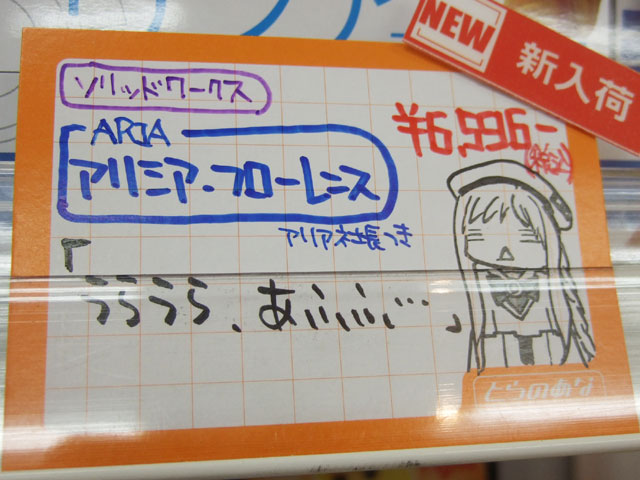 NEW
新入荷
ソリッドワークス
¥6,996-
ARIA
アリシア・フローレンス
アリア社長つき
「うらうら、あふふふ…」
とらのあな